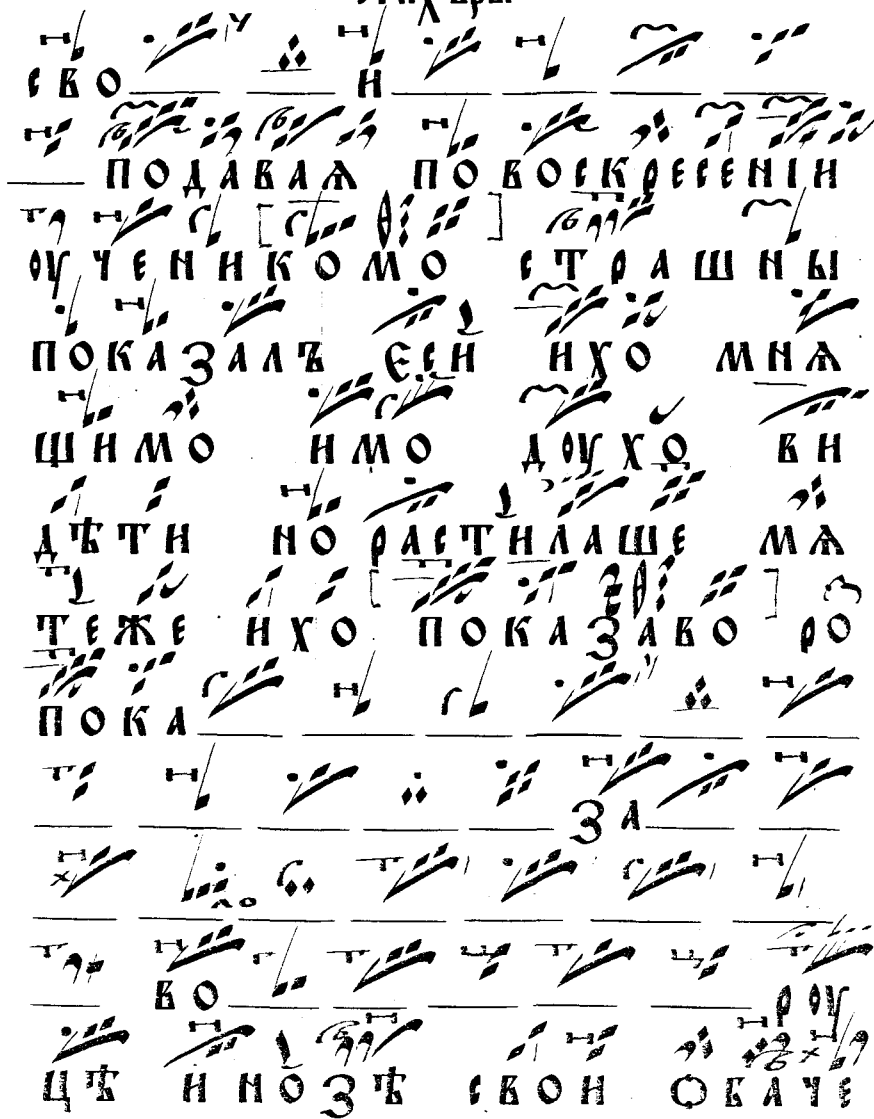 сво и
подаваѧ по воскресенїи
оученикомо страшны
показалъ єси ихо мнѧ
шимо имо доухо ви
дѣти но растилаше мѧ
теже ихо показаво ро
пока
за
во роу
цѣ и нозѣ свои ѻбаче